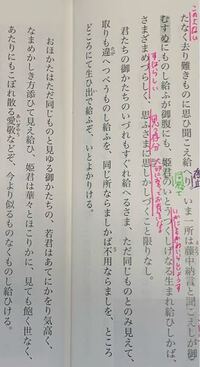 たなく去り難きものに思ひ聞こえ給いま一所は藤中納言と聞こえしが御
むすめにものし給ふが御腹にも、姫君のいとうつくしげなる生まれ給ひしかば、
さまざまめづらしく、思ふさまに思しかしづくこと限りなし。
君たちの御かたちのいづれもすぐれ給へるさま、ただ同じものとのみ見えて、
取りも違へつべうものし給ふを、同じ所ならましかば不用ならましを、ところ
どころにて生ひ出で給ふぞ、いとよかりける。
おほかたはただ同じものと見ゆる御かたちの、若君はあてにかをり気高く、
なまめかしき方添ひて見え給ひ、姫君は華々とほこりかに、見ても飽く世なく、
あたりにもこぼれ散る愛敬などぞ、今より似るものなくものし給ひける。